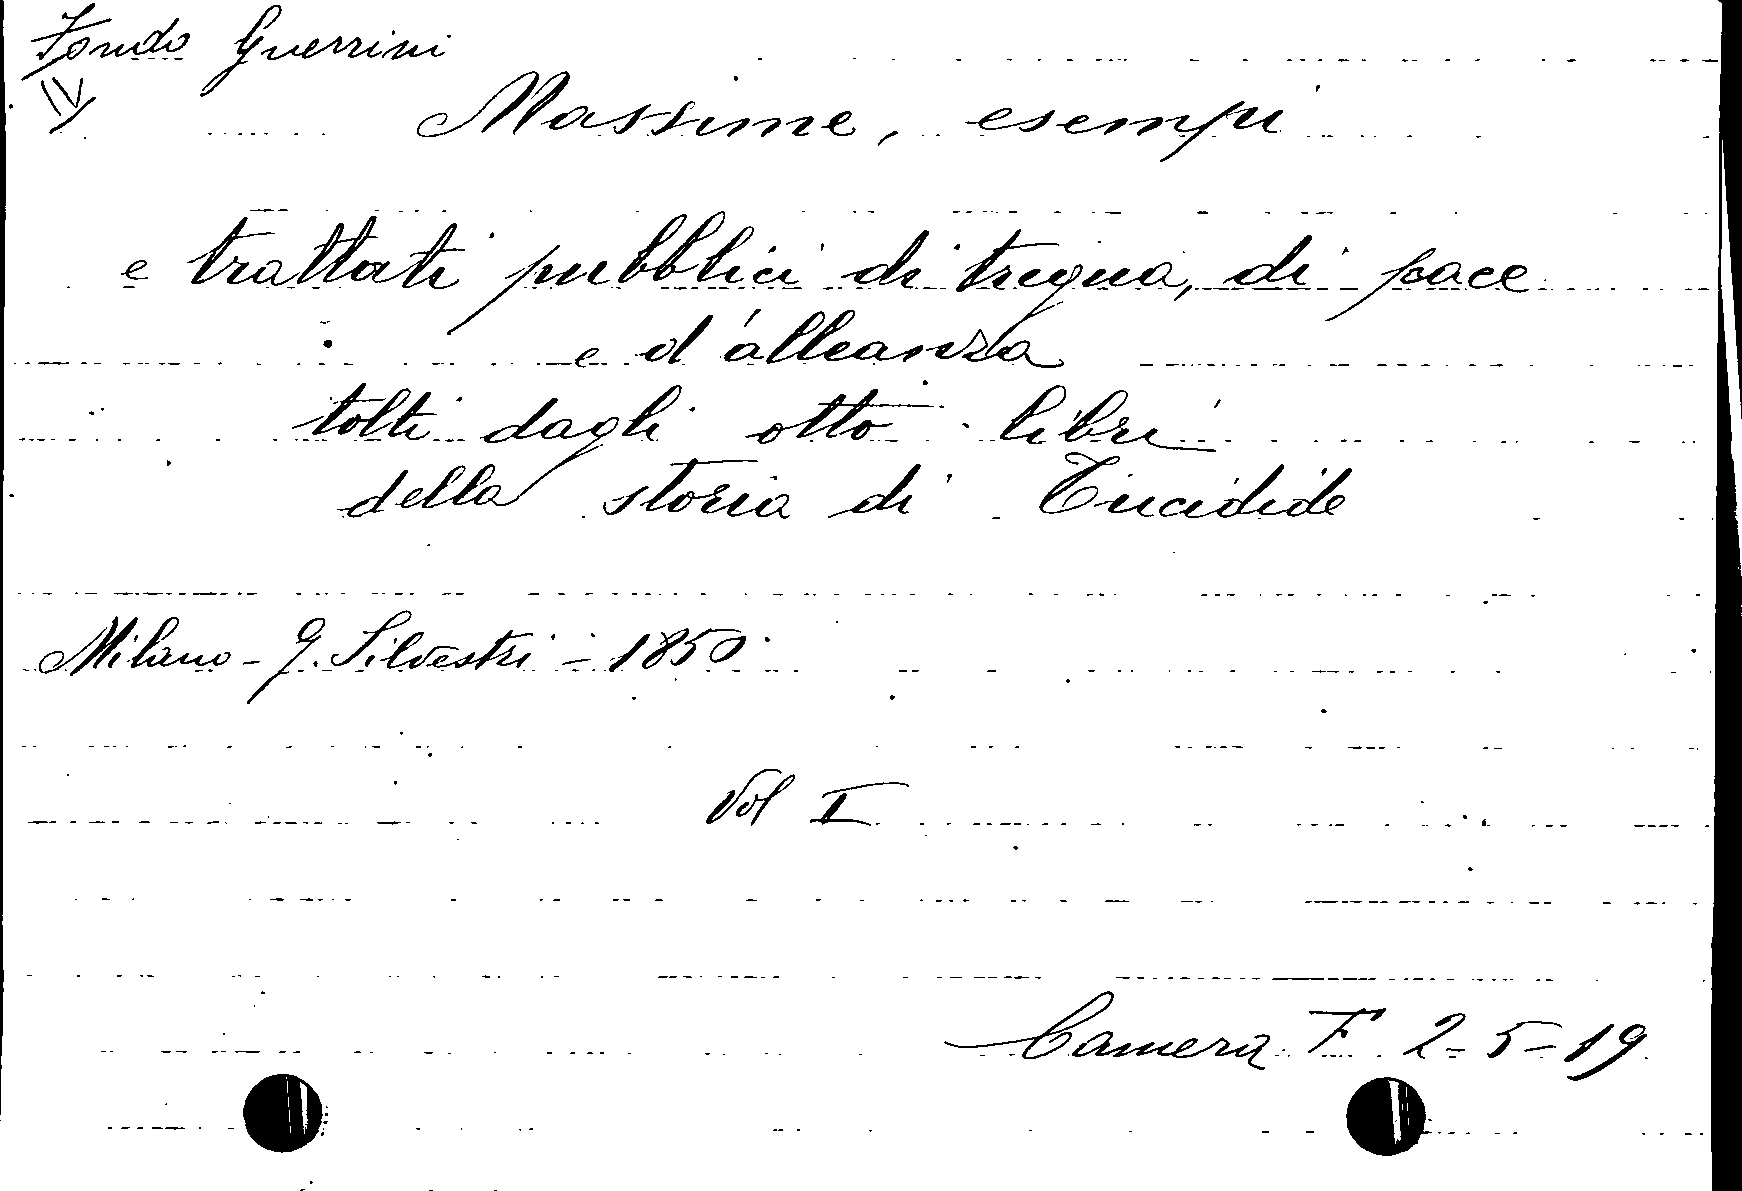 Fondo Guerrini
IV
Massime, esempi
e trattati pubblici di tregua, di pace
e d'alleanza
tolti dagli otto libri
della storia di Tucidide
Milano - G. Silvestri - 1850
Vol I
Camera F 2-5-19